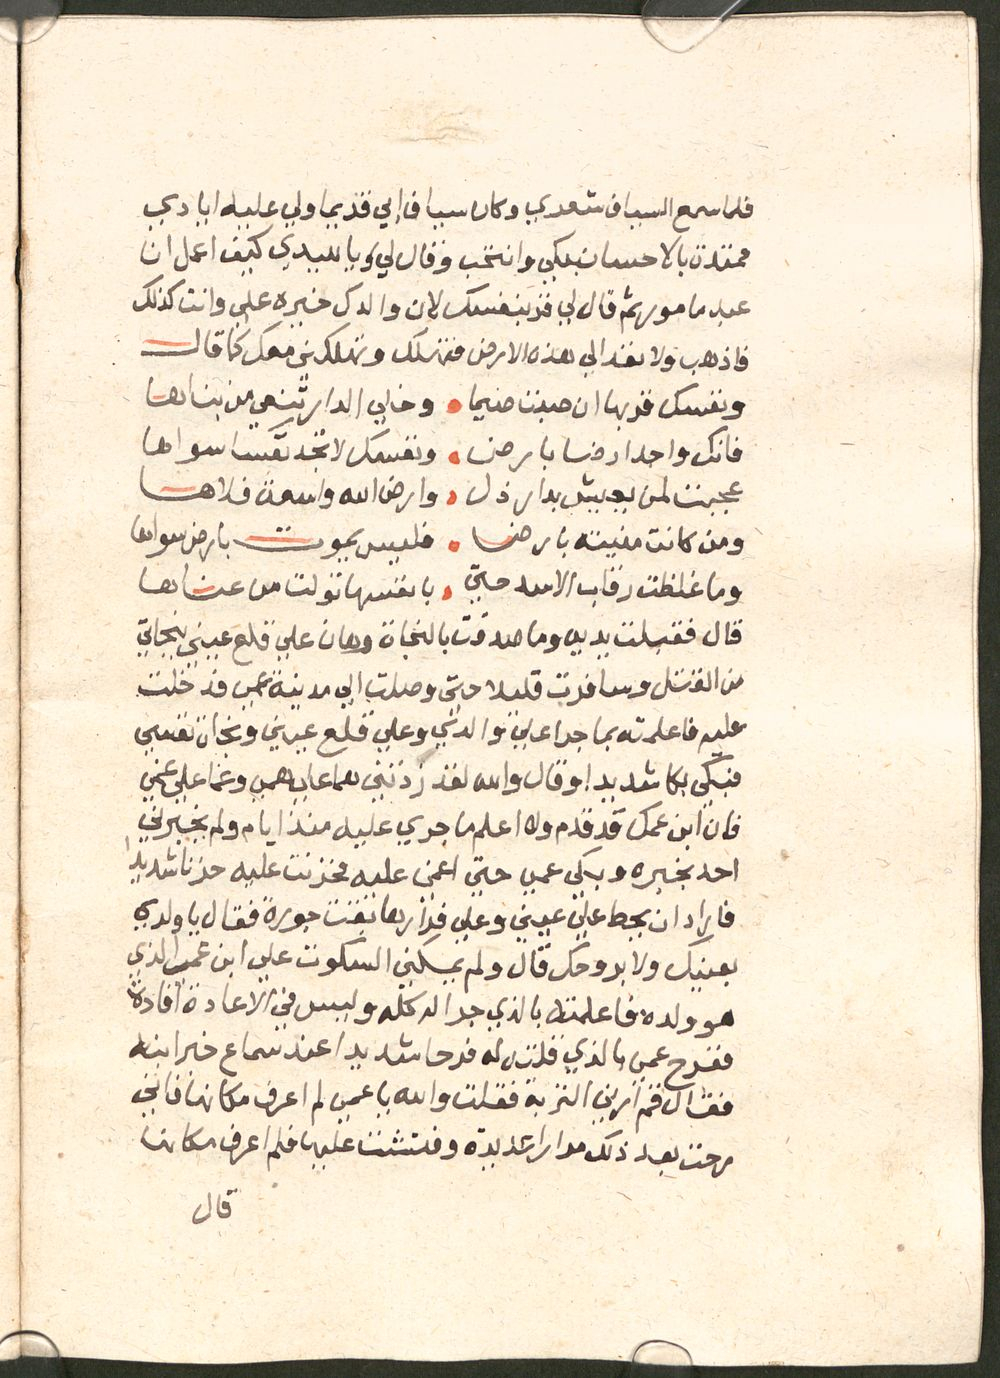 فلما سمع السياف شعري وكان سياف ابي قديما ولي عليه ايادي
ممتدة بالاحسان بكي وانتحب وقال لي يا سيدي كيف اعمل انا
عبد مامور ثم قال لي فز بنفسك لان والدك خيره علي وانت كذلك
فاذهب ولا تعد الي هذه الارض فتهلك وتهلكني معك كما قال
ونفسك فز بها ان صبت ضيما • وخلي الدار تنعي من بناها
فانك واجد ارضا بارض • ونفسك لا تجد نفسا سواها
عجبت لمن يعيش بدار ذل • وارض الله واسعة فلاها
ومن كانت منيته بارض • فليس يموت بارض سواها
وما غلظت رقاب الاسد حتي • بانفسها تولت من عناها
قال فقبلت يديه وما صدقت بالنجاة وهان علي قلع عيني بنجاتي
من القتل وسافرت قليلا حتي وصلت الي مدينة عمي فدخلت
عليه فاعلمته بما جرا علي والدي وعلي قلع عيني ونجاة نفسي
فبكي بكا شديدا وقال والله لقد زدتني هما علي همي وغما علي غمي
فان ابن عمك قد قدم ولا اعلم ما جري عليه منذ ايام ولم يخبرني
احد بخبره وبكي عمي حتي اغمي عليه فحزنت عليه حزنا شديدا
فاراد ان يحط علي عيني وعلي فراها بقت جورة فقال يا ولدي
بعينك ولا بروحك قال ولم يمكني السكوت علي ابن عمي الذي
هو ولده فاعلمته بالذي جرا له كله وليس في الاعادة افادة
ففرح عمي بالذي قلت له فرحا شديدا عند سماع خبر ابنه
فقال قم ارني التربة فقلت والله يا عمي لم اعرف مكانها فاني
رحت بعد ذلك مرارا عديدة وفتشت عليها فلم اعرف مكانها
قال